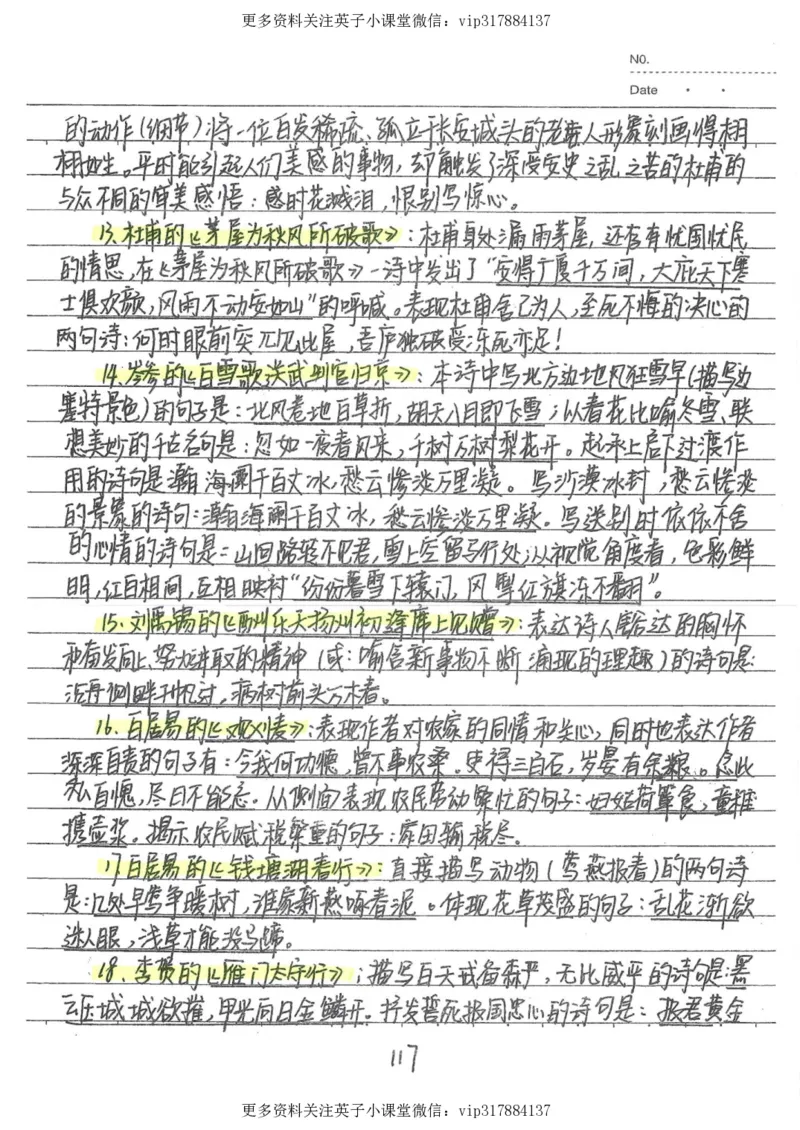 更多资料关注英子小课堂微信：vip317884137
NO.
Date
的动作(细节)将一位白发稀疏、孤立于长安城头的老人形象刻画得栩
栩如生。平时能引起人们美感的事物，却触发了深受安史之乱之苦的杜甫的
与众不同的审美感悟：感时花溅泪，恨别鸟惊心。
13.杜甫的《茅屋为秋风所破歌》：杜甫身处漏雨茅屋，还含有忧国忧民
的情思，在《茅屋为秋风所破歌》一诗中发出了“安得广厦千万间，大庇天下寒
士俱欢颜，风雨不动安如山”的呼喊。表现杜甫舍己为人，至死不悔的决心的
两句诗：何时眼前突兀见此屋，吾庐独破受冻死亦足！
14.岑参的《白雪歌送武判官归京》：本诗中写北方边地风狂雪早(描写边
塞特景色)的句子是：北风卷地百草折，胡天八月即飞雪；以春花比喻冬雪、联
想美妙的千古名句是：忽如一夜春风来，千树万树梨花开。起承上启下过渡作
用的诗句是瀚海阑干百丈冰，愁云惨淡万里凝。写沙漠冰封，愁云惨淡
的景象的诗句：瀚海阑干百丈冰，愁云惨淡万里凝。写送别时依依不舍
的心情的诗句是：山回路转不见君，雪上空留马行处；从视觉角度看，色彩鲜
明，红白相间，互相映衬“纷纷暮雪下辕门，风掣红旗冻不翻”。
15.刘禹锡的《酬乐天扬州初逢席上见赠》：表达诗人豁达的胸怀
和奋发向上、努力进取的精神(或：喻含新事物不断涌现的理趣)的诗句是：
沉舟侧畔千帆过，病树前头万木春。
16.白居易的《观刈麦》：表现作者对农家的同情和关心，同时也表达作者
深深自责的句子有：今我何功德，曾不事农桑。吏得三百石，岁晏有余粮。念此
私自愧，尽日不能忘。从侧面表现农民劳动繁忙的句子：妇姑荷箪食，童稚
携壶浆。揭示农民赋税繁重的句子：家田输税尽。
17.白居易的《钱塘湖春行》：直接描写动物(莺燕报春)的两句诗
是：几处早莺争暖树，谁家新燕啄春泥。体现花草茂盛的句子：乱花渐欲
迷人眼，浅草才能没马蹄。
18、李贺的《雁门太守行》：描写白天戒备森严，无比威严的诗句是：黑
云压城城欲摧，甲光向日金鳞开。抒发誓死报国忠心的诗句是：报君黄金
117
更多资料关注英子小课堂微信：vip317884137